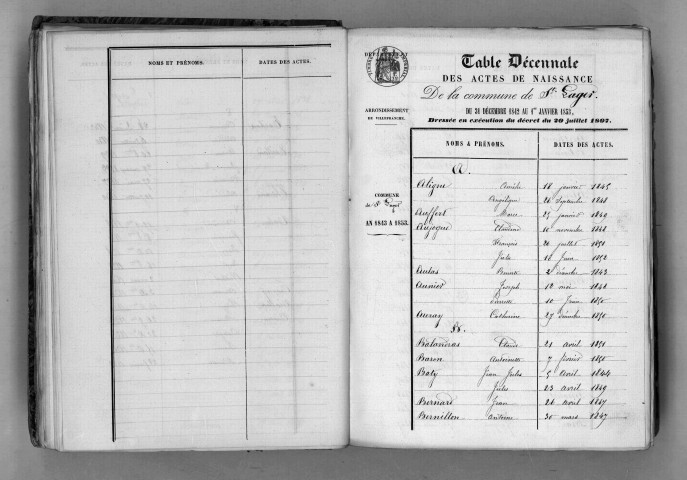 NOMS ET PRÉNOMS. DATES DES ACTES.
Table Décennale
DES ACTES DE NAISSANCE
De la commune de St Lager.
DU 31 DÉCEMBRE 1842 AU 1er JANVIER 1853.
Dressée en exécution du décret du 20 juillet 1807.
ARRONDISSEMENT
DE VILLEFRANCHE.
COMMUNE
de St Lager
AN 1843 A 1853.
NOMS & PRÉNOMS. DATES DES ACTES.
A.
Aligne 18 janvier 1845
Angélique 26 septembre 1848
Auffert Marie 25 janvier 1849
Aujogue Claudine 10 novembre 1848
François 26 juillet 1850
Jules 16 Juin 1852
Aulas Benoite 2 décembre 1843
Aunier Joseph 12 mai 1848
Pierrette 10 Juin 1850
Auray Catherine 27 décembre 1850
B.
Balandras Claude 21 avril 1851
Baron Antoinette 7 février 1850
Baty Jean Jules 5 avril 1844
Jules 23 avril 1849
Bernard Jean 26 avril 1847
Bernillon Antoine 30 mars 1847